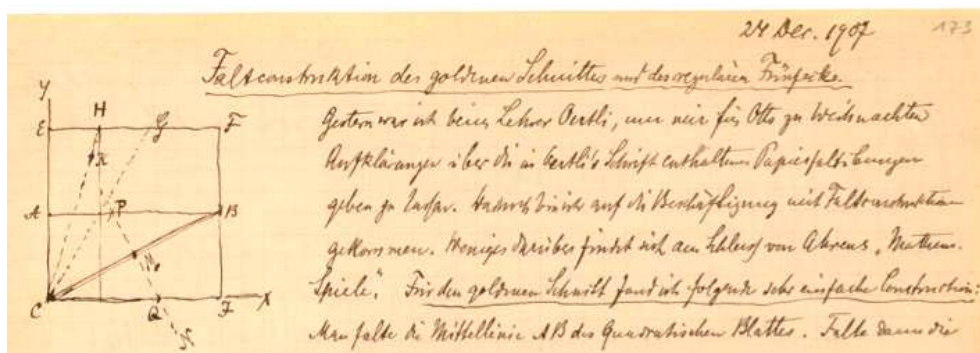 24 Dec. 1907
173
Faltconstruktion des goldenen Schnittes und des regulären Fünfecks.
Gestern war ich beim Lehrer Oertli, um mir für Otto zu Weihnachten
Aufklärungen über die in Oertli's Schrift enthaltenen Papierfaltübungen
geben zu lassen. Dadurch bin ich auf die Beschäftigung mit Faltconstruktionen
gekommen. Weniges darüber findet sich am Schluss von Ahrens „Mathem.
Spiele". Für den goldenen Schnitt fand ich folgende sehr einfache Construction:
Man falte die Mittellinie AB des quadratischen Blattes. Falte dann die
Y
E H G F
K
A P B
C Q J X